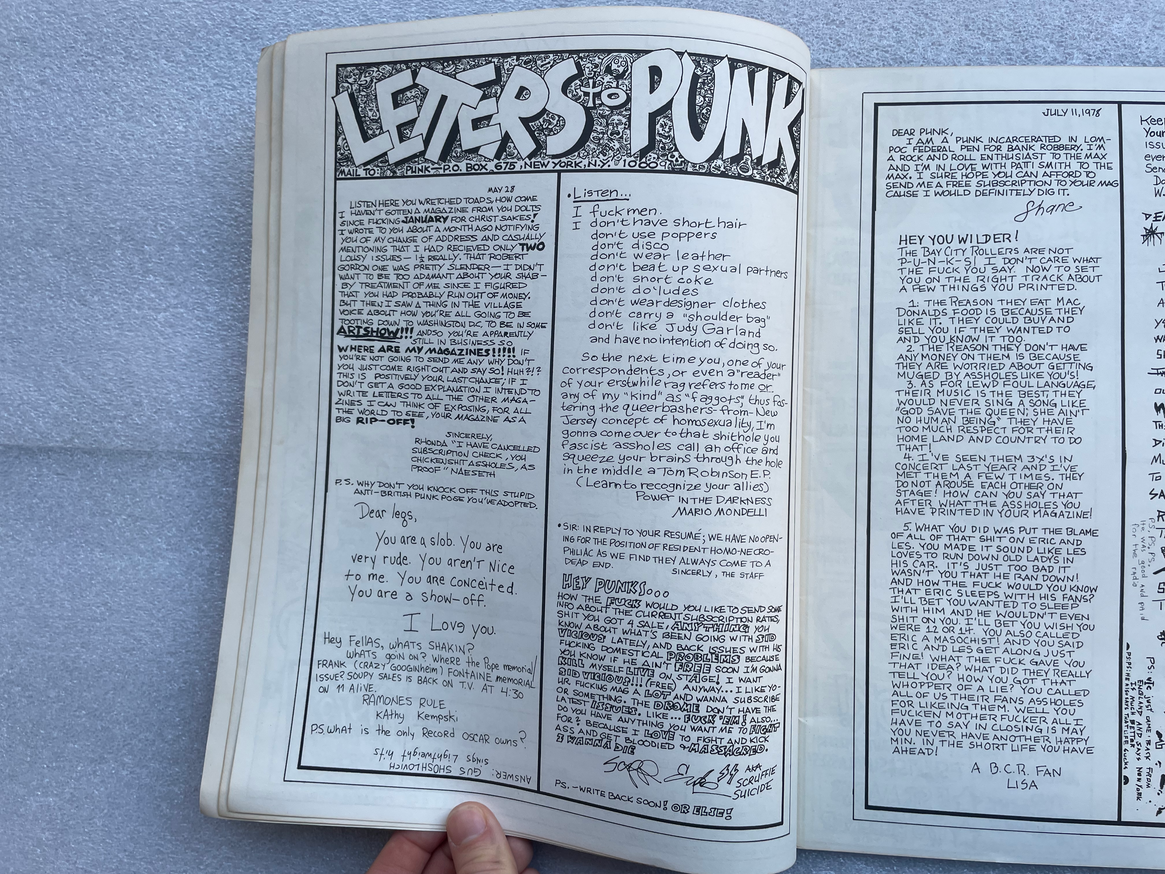 LETTERS to PUNK
MAIL TO: PUNK - P.O. BOX 675, NEW YORK, N.Y. 10009
MAY 28
LISTEN HERE YOU WRETCHED TOADS, HOW COME
I HAVEN'T GOTTEN A MAGAZINE FROM YOU DOLTS
SINCE FUCKING JANUARY FOR CHRIST SAKES!
I WROTE TO YOU ABOUT A MONTH AGO NOTIFYING
YOU OF MY CHANGE OF ADDRESS AND CASUALLY
MENTIONING THAT I HAD RECIEVED ONLY TWO
LOUSY ISSUES - 1½ REALLY. THAT ROBERT
GORDON ONE WAS PRETTY SLENDER - I DIDN'T
WANT TO BE TOO ADAMANT ABOUT YOUR SHAB-
BY TREATMENT OF ME SINCE I FIGURED
THAT YOU HAD PROBABLY RUN OUT OF MONEY.
BUT THEN I SAW A THING IN THE VILLAGE
VOICE ABOUT HOW YOU'RE ALL GOING TO BE
TOOTING DOWN TO WASHINGTON D.C. TO BE IN SOME
ARTSHOW!!! AND SO YOU'RE APPARENTLY
STILL IN BUSINESS SO
WHERE ARE MY MAGAZINES!!!!! IF
YOU'RE NOT GOING TO SEND ME ANY WHY DON'T
YOU JUST COME RIGHT OUT AND SAY SO! HUH?!?
THIS IS POSITIVELY YOUR LAST CHANCE, IF I
DON'T GET A GOOD EXPLANATION I INTEND TO
WRITE LETTERS TO ALL THE OTHER MAGA-
ZINES I CAN THINK OF EXPOSING, FOR ALL
THE WORLD TO SEE, YOUR MAGAZINE AS A
BIG RIP-OFF!
SINCERELY,
RHONDA "I HAVE CANCELLED
SUBSCRIPTION CHECK, YOU
CHICKENSHIT ASSHOLES, AS
PROOF" NAESETH
P.S. WHY DON'T YOU KNOCK OFF THIS STUPID
ANTI-BRITISH PUNK POSE YOU'VE ADOPTED.
Dear legs,
You are a slob. You are
very rude. You aren't nice
to me. You are conceited.
You are a show-off.
I Love you.
Hey FELLAS, WHATS SHAKIN?
WHATS goin on? Where the Pope memorial/
FRANK (CRAZY GOOGINHEIM) FONTAINE memorial
ISSUE? SOUPY SALES IS BACK ON T.V. AT 4:30
ON 11 Alive.
RAMONES RULE
KAthy Kempski
PS. what is the only Record OSCAR owns?
ANSWER: GUS SHOSHLOVICH
SINGS
•Listen...
I fuck men.
I don't have short hair
don't use poppers
don't disco
don't wear leather
don't beat up sexual partners
don't snort coke
don't do 'ludes
don't wear designer clothes
don't carry a "shoulder bag"
don't like Judy Garland
and have no intention of doing so.
So the next time you, one of your
correspondents, or even a "reader"
of your erstwhile rag refers to me or
any of my "kind" as "faggots", thus fos-
tering the queerbashers-from-New
Jersey concept of homosexuality, I'm
gonna come over to that shithole you
fascist assholes call an office and
squeeze your brains through the hole
in the middle a Tom Robinson E.P.
(Learn to recognize your allies)
Power IN THE DARKNESS
MARIO MONDELLI
•SIR: IN REPLY TO YOUR RESUMÉ; WE HAVE NO OPEN-
ING FOR THE POSITION OF RESIDENT HOMO-NECRO-
PHILIAC AS WE FIND THEY ALWAYS COME TO A
DEAD END.
SINCERELY, THE STAFF
HEY PUNKS...
HOW THE FUCK WOULD YOU LIKE TO SEND SOME
INFO ABOUT THE CURRENT SUBSCRIPTION RATES,
SHIT YOU GOT 4 SALE, ANYTHING YOU
KNOW ABOUT WHAT'S BEEN GOING WITH SID
VICIOUS LATELY, AND BACK ISSUES WITH HIS
FUCKING DOMESTICAL PROBLEMS BECAUSE
YOU KNOW IF HE AIN'T FREE SOON I'M GONNA
KILL MYSELF LIVE ON STAGE! I WANT
SID VICIOUS!!! (FREE) ANYWAY... I LIKE YO-
UR FUCKING MAG A LOT AND WANNA SUBSCRIBE
OR SOMETHING. THE DROME DON'T HAVE THE
LATEST ISSUES. LIKE... FUCK 'EM! ALSO...
DO YOU HAVE ANYTHING YOU WANT ME TO FIGHT
FOR? BECAUSE I LOVE TO FIGHT AND KICK
ASS AND GET BLOODIED & MASSACRED.
I WANNA DIE
AKA
SCRUFFIE
SUICIDE
PS. - WRITE BACK SOON! OR ELSE!
JULY 11, 1978
DEAR PUNK,
I AM A PUNK INCARCERATED IN LOM-
POC FEDERAL PEN FOR BANK ROBBERY. I'M
A ROCK AND ROLL ENTHUSIAST TO THE MAX
AND I'M IN LOVE WITH PATTI SMITH TO THE
MAX. I SURE HOPE YOU CAN AFFORD TO
SEND ME A FREE SUBSCRIPTION TO YOUR MAG
CAUSE I WOULD DEFINITELY DIG IT.
Shane
HEY YOU WILDER!
THE BAY CITY ROLLERS ARE NOT
P-U-N-K-S! I DON'T CARE WHAT
THE FUCK YOU SAY. NOW TO SET
YOU ON THE RIGHT TRACK ABOUT
A FEW THINGS YOU PRINTED.
1. THE REASON THEY EAT MAC
DONALDS FOOD IS BECAUSE THEY
LIKE IT. THEY COULD BUY AND
SELL YOU IF THEY WANTED TO
AND YOU KNOW IT TOO.
2. THE REASON THEY DON'T HAVE
ANY MONEY ON THEM IS BECAUSE
THEY ARE WORRIED ABOUT GETTING
MUGED BY ASSHOLES LIKE YOU'S!
3. AS FOR LEWD FOUL LANGUAGE,
THEIR MUSIC IS THE BEST, THEY
WOULD NEVER SING A SONG LIKE
"GOD SAVE THE QUEEN; SHE AIN'T
NO HUMAN BEING" THEY HAVE
TOO MUCH RESPECT FOR THEIR
HOME LAND AND COUNTRY TO DO
THAT!
4. I'VE SEEN THEM 3X'S IN
CONCERT LAST YEAR AND I'VE
MET THEM A FEW TIMES. THEY
DO NOT AROUSE EACH OTHER ON
STAGE! HOW CAN YOU SAY THAT
AFTER WHAT THE ASSHOLES YOU
HAVE PRINTED IN YOUR MAGAZINE!
5. WHAT YOU DID WAS PUT THE BLAME
OF ALL OF THAT SHIT ON ERIC AND
LES. YOU MADE IT SOUND LIKE LES
LOVES TO RUN DOWN OLD LADYS IN
HIS CAR. IT'S JUST TOO BAD IT
WASN'T YOU THAT HE RAN DOWN!
AND HOW THE FUCK WOULD YOU KNOW
THAT ERIC SLEEPS WITH HIS FANS?
I'LL BET YOU WANTED TO SLEEP
WITH HIM AND HE WOULDN'T EVEN
SHIT ON YOU. I'LL BET YOU WISH YOU
WERE 12 OR 14. YOU ALSO CALLED
ERIC A MASOCHIST! AND YOU SAID
ERIC AND LES GET ALONG JUST
FINE! WHAT THE FUCK GAVE YOU
THAT IDEA? WHAT DID THEY REALLY
TELL YOU? HOW YOU GOT THAT
WHOPPER OF A LIE? YOU CALLED
ALL OF US THEIR FANS ASSHOLES
FOR LIKEING THEM. WELL YOU
FUCKEN MOTHER FUCKER ALL I
HAVE TO SAY IN CLOSING IS MAY
YOU NEVER HAVE ANOTHER HAPPY
MIN. IN THE SHORT LIFE YOU HAVE
AHEAD!
A B.C.R. FAN
LISA